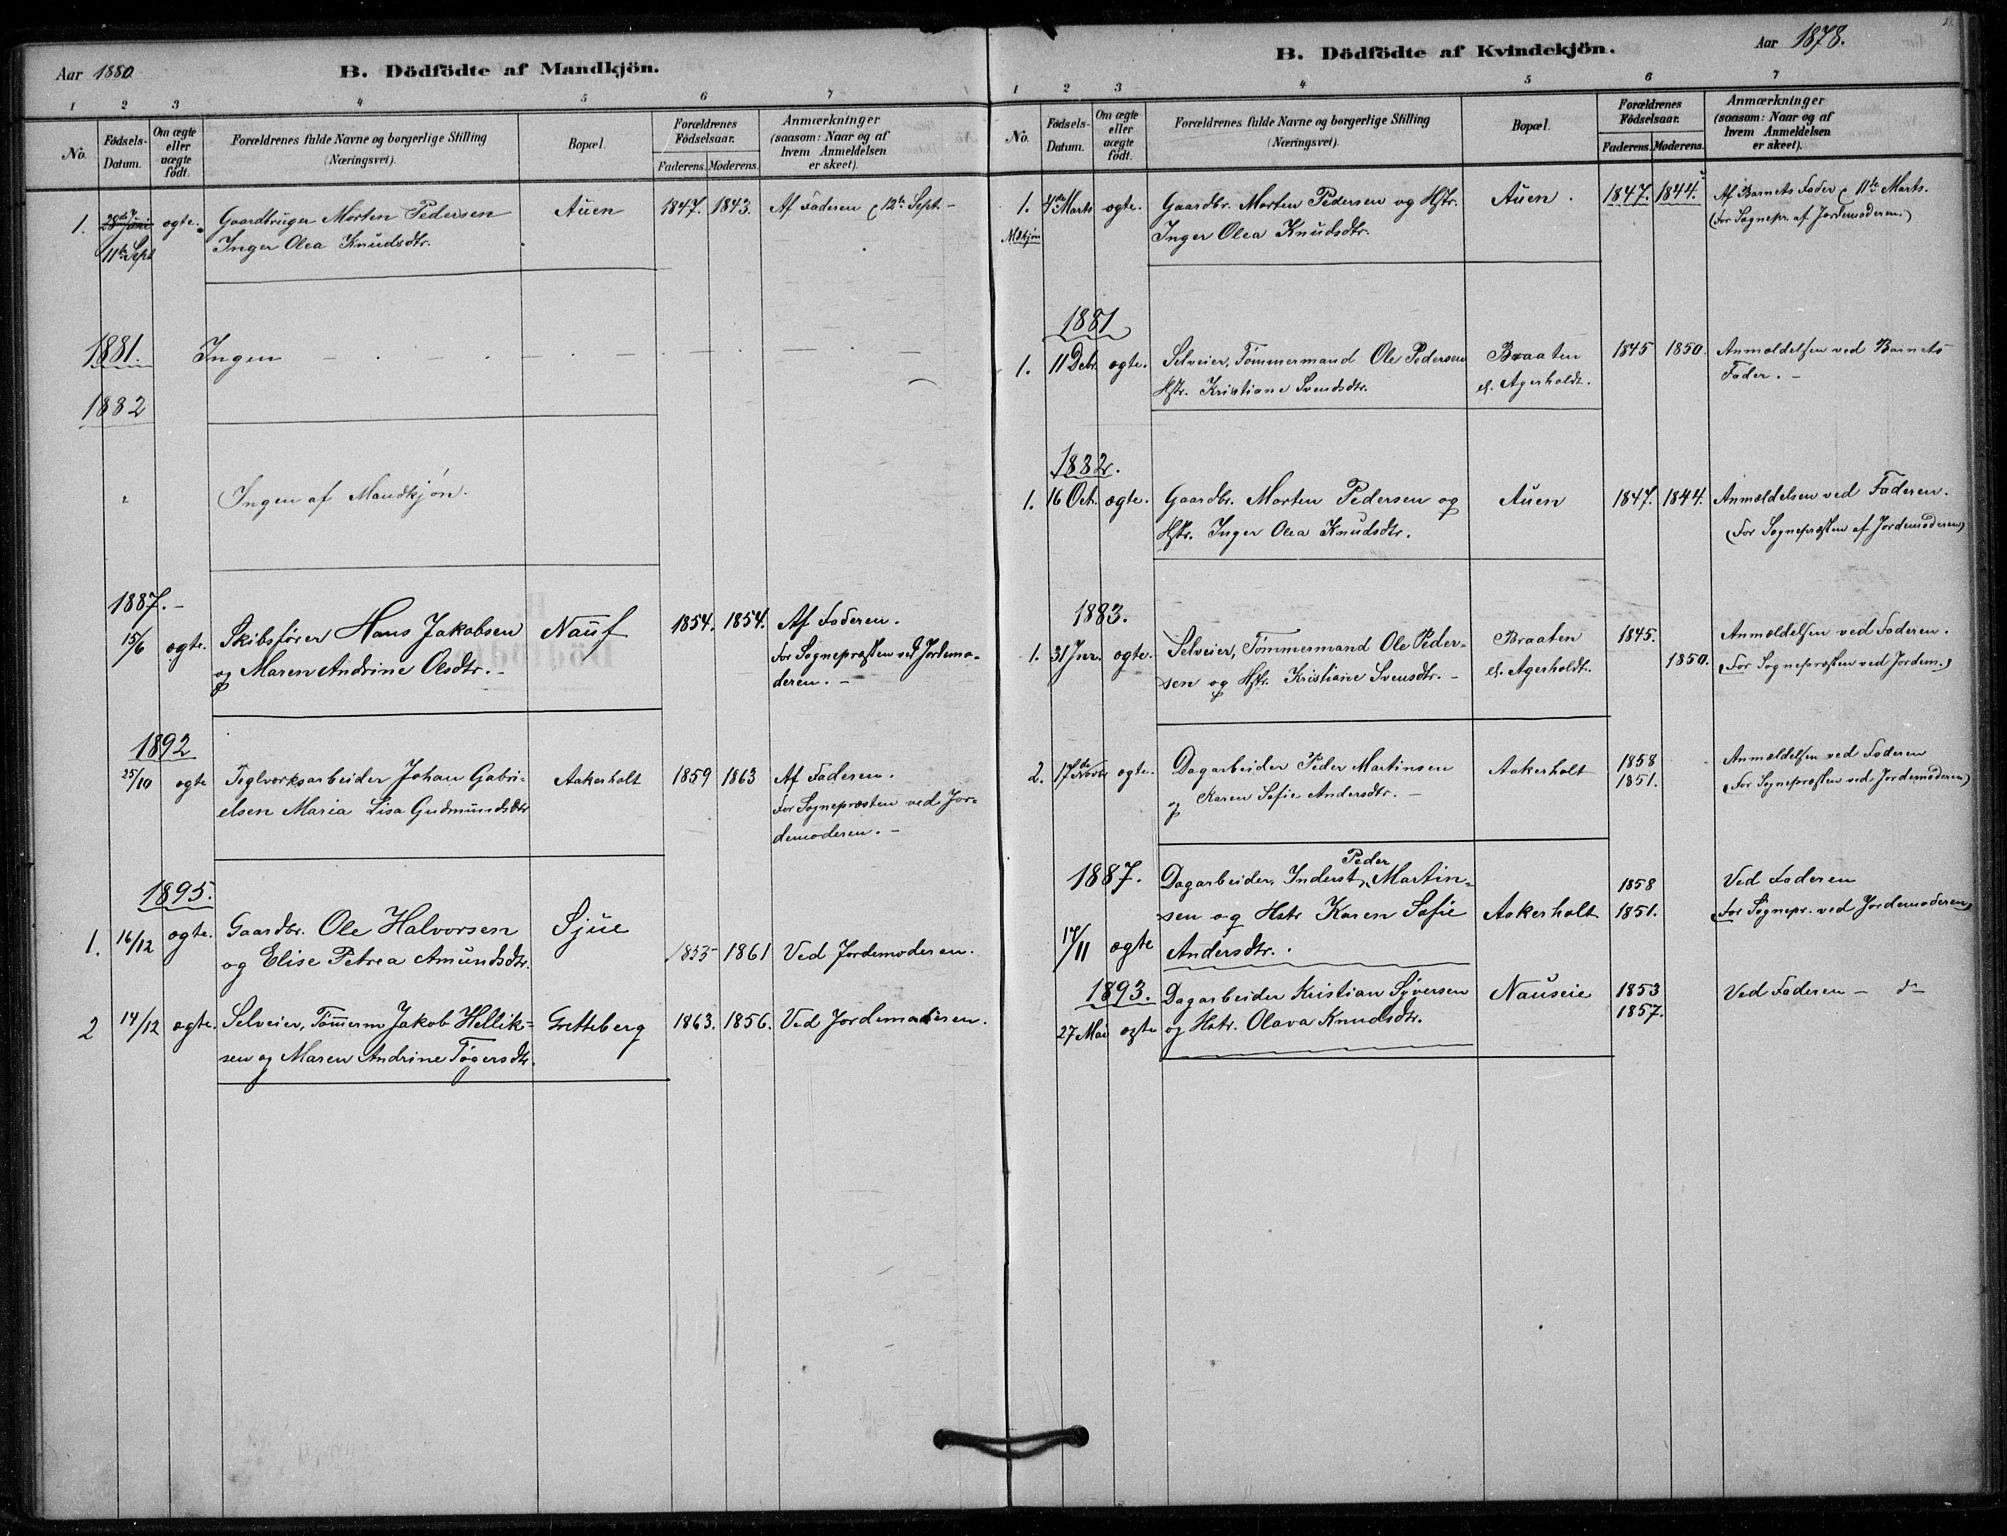 Aar 1880.
B. Dödfödte af Mandkjön.
1 2 3 4 5 6 7
No.
Födsels-Datum.
Om ægte eller uægte födt.
Forældrenes fulde Navne og borgerlige Stilling (Næringsvei).
Bopæl.
Forældrenes Födselsaar.
Faderens. Moderens.
Anmærkninger
(saasom: Naar og af
hvem Anmeldelsen
er skeet).
1. 28de Juni ægte. Gaardbruger Morten Pedersen Auen 1847. 1843. Af Faderen (12te Sept.
11te Sept Inger Olea Knudsdtr.
1881. Ingen
1882
Ingen af Mandkjön.
1887.
15/6 ægte. Skibsförer Hans Jakobsen Nauf 1854. 1854. Af Faderen.
og Maren Andrine Olsdtr. For Sognepræsten ved Jordemo-
deren.
1892
25/10 ægte Teglværksarbeider Johan Gabri- Aakerholt 1859 1863 Af Faderen.
elsen Maria Lisa Gudmundsdtr For Sognepræsten ved Jor-
demoderen.
1895.
1. 16/12 ægte. Gaardbr. Ole Halvorsen Sjue
og Elise Petrea Amundsdtr. 1855 1861 Ved Jordemoderen.
2 14/12 ægte. Selveier, Tömerm Jakob Hellik- Gretteberg 1863. 1856. Ved Jordemoderen.
sen og Maren Andrine Tögersdtr.
Aar 1878.
B. Dödfödte af Kvindekjön.
1 2 3 4 5 6 7
No.
Födsels-Datum.
Om ægte eller uægte födt.
Forældrenes fulde Navne og borgerlige Stilling (Næringsvei).
Bopæl.
Forældrenes Födselsaar.
Faderens. Moderens.
Anmærkninger
(saasom: Naar og af
hvem Anmeldelsen
er skeet).
1. 4de Marts ægte. Gaardbr. Morten Pedersen og Hstr. Auen. 1847. 1844. Af Barnets Fader (11te Marts.
Inger Olea Knudsdtr. (For Sognepr. af Jordemoderen.)
1881
1. 11 Decbr. ægte. Selveier, Tömmermand Ole Pedersen Braaten 1845 1850. Anmeldelsen ved Barnets
Hstr. Kristiane Svendsdtr. e. Agerholdt. Fader.
1882.
1. 16 Oct. ægte. Gaardbr. Morten Pedersen og Auen 1847. 1844. Anmeldelsen ved Faderen.
Hstr. Inger Olea Knudsdtr. (For Sognepræsten af Jordemoderen)
1883.
1. 31 Jnr. ægte. Selveier, Tömmermand Ole Peder- Braaten 1845. Anmeldelsen ved Faderen.
sen og Hstr. Kristiane Svensdtr. e. Agerholdt. 1850. (For Sognepræsten ved Jordem.)
2. 17de Novbr ægte. Dagarbeider Peder Martinsen Aakerholt 1858 Anmeldelsen ved Faderen
og Karen Sofie Andersdtr. 1851. (For Sognepræsten ved Jordemoderen)
1887. Dagarbeider, Inderst, Peder Martin- 1858 Ved Faderen
sen og Hstr Karen Sofie Aakerholt 1851. For Sognepr. ved Jordemoderen,
14/11 ægte Andersdtr.
1893. Dagarbeider Kristian Syversen Nauseie 1853 Ved Faderen
27 Mai ægte og Hstr. Olava Knudsdtr. 1857.